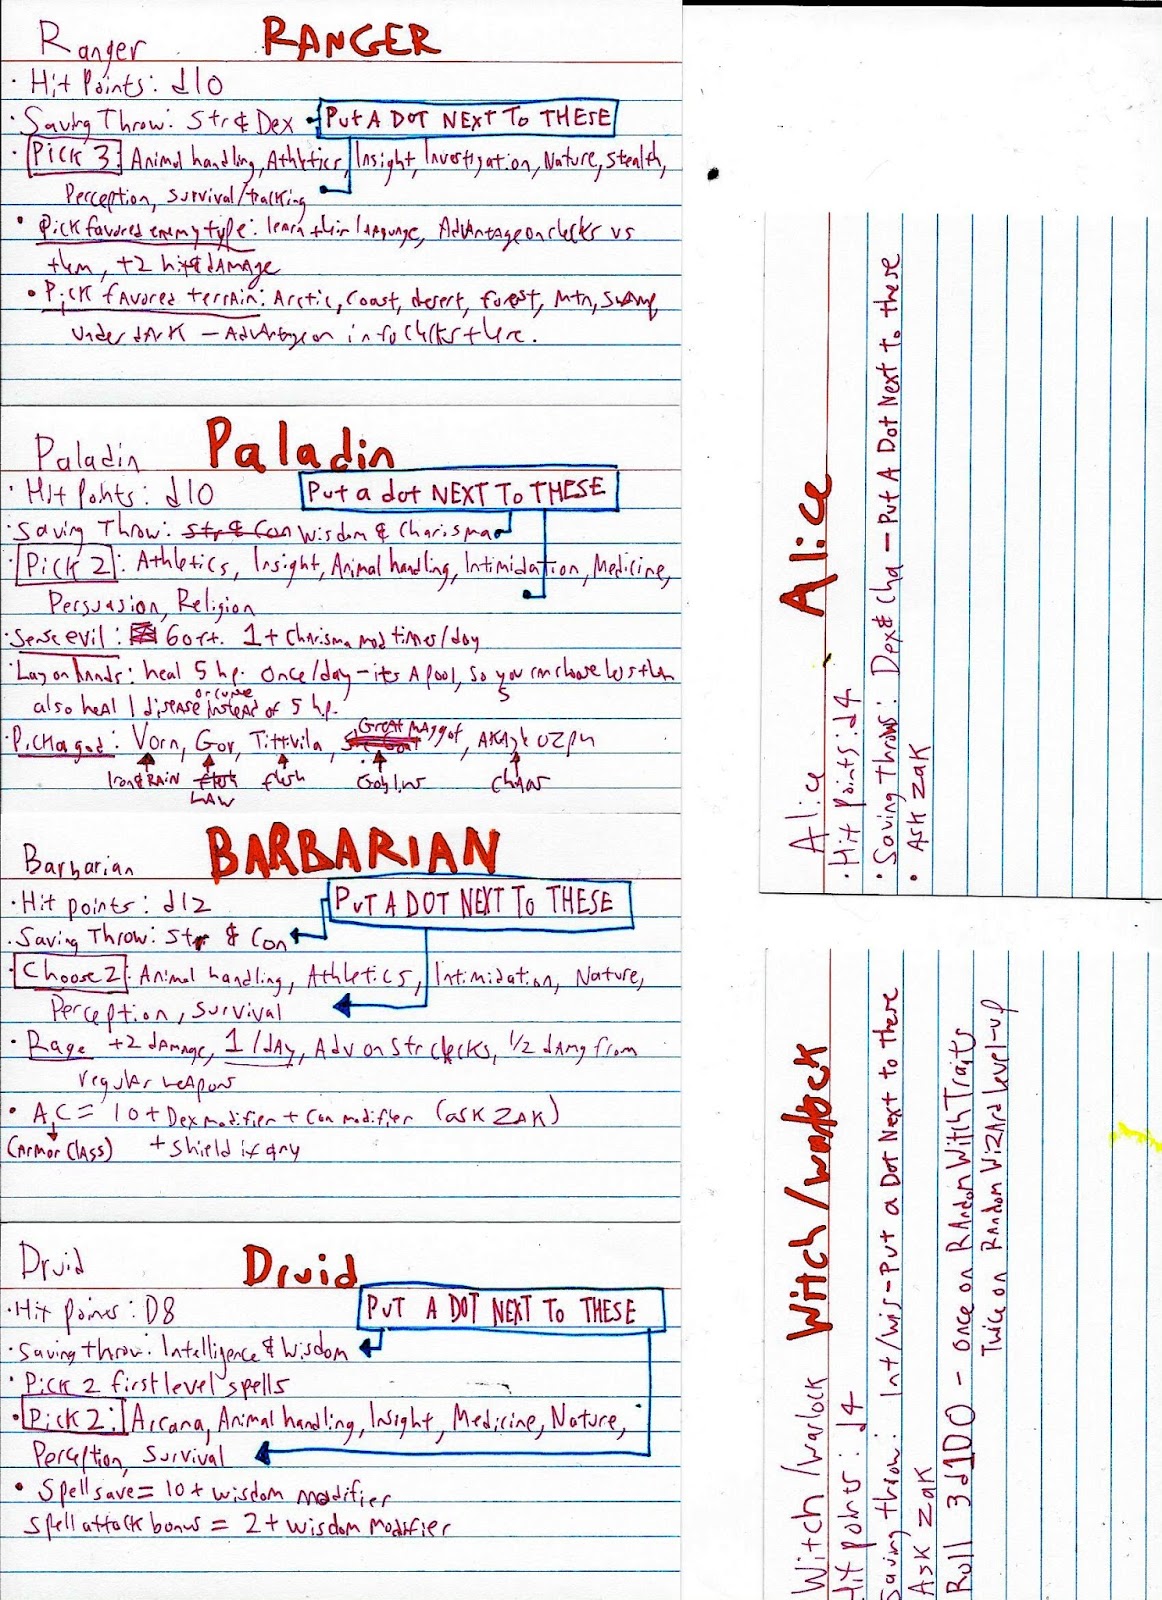 Ranger RANGER
• Hit Points: d10
• Saving Throw: Str & Dex PUT A DOT NEXT TO THESE
• PICK 3: Animal handling, Athletics, Insight, Investigation, Nature, Stealth,
Perception, Survival/tracking
• Pick favored enemy type: learn their language, Advantage on checks vs
them, +2 hit & damage
• Pick favored terrain: Arctic, Coast, desert, forest, Mtn, Swamp
Underdark — Advantage on info checks there.
Paladin Paladin
• Hit Points: d10 Put a dot NEXT TO THESE
• Saving Throw: Str & Con Wisdom & Charisma
• Pick 2: Athletics, Insight, Animal handling, Intimidation, Medicine,
Persuasion, Religion
• Sense evil: 60 ft. 1 + Charisma mod times/day
• Lay on hands: heal 5 hp. once/day – its a pool, so you can choose less than 5
also heal 1 disease or curse instead of 5 hp.
• Pick a god: Vorn, Gov, Tittivila, Great Maggot,
Iron & RAIN flesh LAW flesh Goblins CHAOS
Barbarian BARBARIAN
• Hit points: d12 PUT A DOT NEXT TO THESE
• Saving Throw: Str & Con
• Choose 2: Animal handling, Athletics, Intimidation, Nature,
Perception, Survival
• Rage +2 damage, 1/day, Adv on Str checks, 1/2 damg from
regular weapons
• A.C = 10 + Dex modifier + Con modifier (ask ZAK)
(Armor Class) + shield if any
Druid Druid
• Hit Points: D8 PUT A DOT NEXT TO THESE
• Saving throw: Intelligence & Wisdom
• Pick 2 first level spells
• Pick 2: Arcana, Animal handling, Insight, Medicine, Nature,
Perception, Survival
• Spell save = 10 + wisdom modifier
Spell attack bonus = 2 + wisdom modifier
Alice Alice
• Hit Points: d4
• Saving Throws: Dex & Cha – Put A Dot Next to these
• Ask Zak
Witch/Warlock Witch/warlock
Hit points: d4
Saving throw: Int/wis – Put a Dot Next to these
Ask Zak
Roll 3d100 – once on Random Witch Traits
Twice on Random Wizard level-up